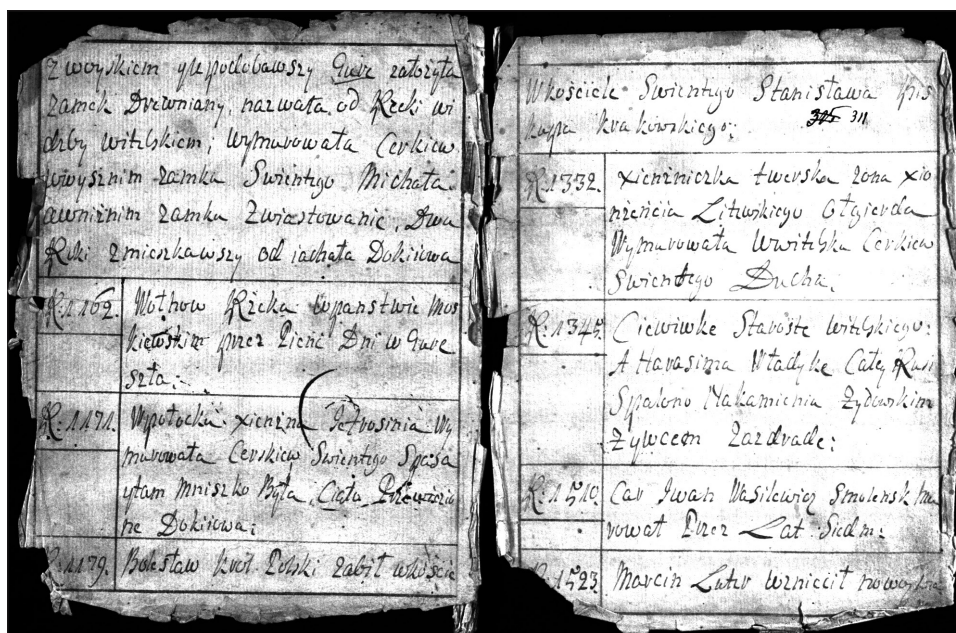 z woyskiem upodobawszy Gure załozyła
zamek Drewniany, nazwała od Rzeki wi
dzby witebskiem; Wymurowała Cerkiew
wwysznim zamku Swientego Michała
awnižnim zamku Zwiastowanie, Dwa
Roki zmieszkawszy od iachała Dokiiowa
R: 1162. Wołhow Rzeka wpanstwie Mos
kiewskim przez Pienć Dni w Gure
szła;
R: 1171. Wpołocku xienzna Jefrosinia Wy
murowała Cerkiew Swientego Spasa
ytam Mniszko Była, Ciało
ne Dokiiowa;
R: 1179. Bolesław Krol Polski zabił wkoscie
Wkościele Swientego Stanisława Bis
kupa Krakowskiego;
315 311
R: 1332. xienzniczka twerska zona xio
nzencia Litewskiego Olgierda
Wymurowała Wwitebsku Cerkiew
Swientego Ducha.
R: 1345. Ciewiwke Staroste witebskiego:
A Harasima Władyke Całey Rusi
Spalono Nakamieniu Żydowskim
Żywcem Zazdrade:
R: 1510. Car Iwan Wasilewicz Smolensk mu
rował Przez Lat Siedm:
R: 1523. Marcin Luter wzniecił